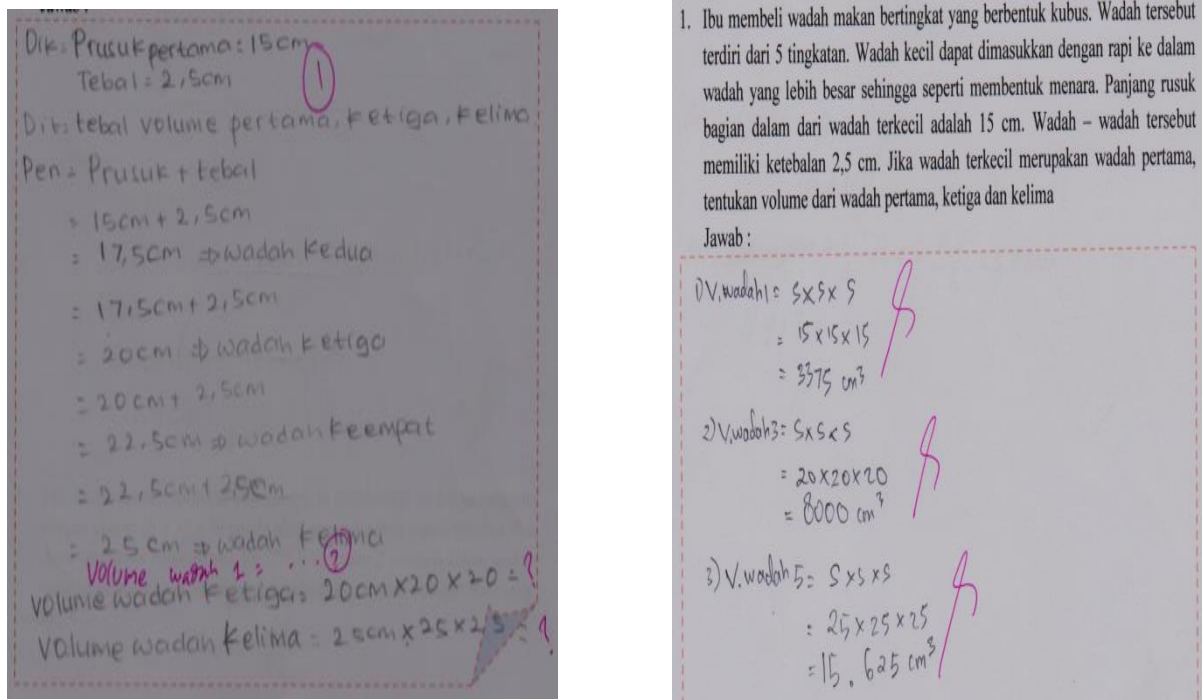 Dik: Prusuk pertama: 15cm
Tebal = 2,5cm
1
Dit: tebal volume pertama, ketiga, kelima
Pen = Prusuk + tebal
= 15cm + 2,5cm
= 17,5cm ⇒ wadah kedua
= 17,5cm + 2,5cm
= 20cm ⇒ wadah ketiga
= 20cm + 2,5cm
= 22,5cm ⇒ wadah keempat
= 22,5cm + 2,5cm
= 25cm ⇒ wadah kelima
2
Volume wadah 1 = ...
volume wadah ketiga = 20cm × 20 × 20 = ?
Volume wadah kelima = 25cm × 25 × 25 = ?
1. Ibu membeli wadah makan bertingkat yang berbentuk kubus. Wadah tersebut
terdiri dari 5 tingkatan. Wadah kecil dapat dimasukkan dengan rapi ke dalam
wadah yang lebih besar sehingga seperti membentuk menara. Panjang rusuk
bagian dalam dari wadah terkecil adalah 15 cm. Wadah – wadah tersebut
memiliki ketebalan 2,5 cm. Jika wadah terkecil merupakan wadah pertama,
tentukan volume dari wadah pertama, ketiga dan kelima
Jawab :
1) V. wadah 1 = S × S × S
= 15 × 15 × 15
= 3375 cm³
2) V. wadah 3 = S × S × S
= 20 × 20 × 20
= 8000 cm³
3) V. wadah 5 = S × S × S
= 25 × 25 × 25
= 15.625 cm³